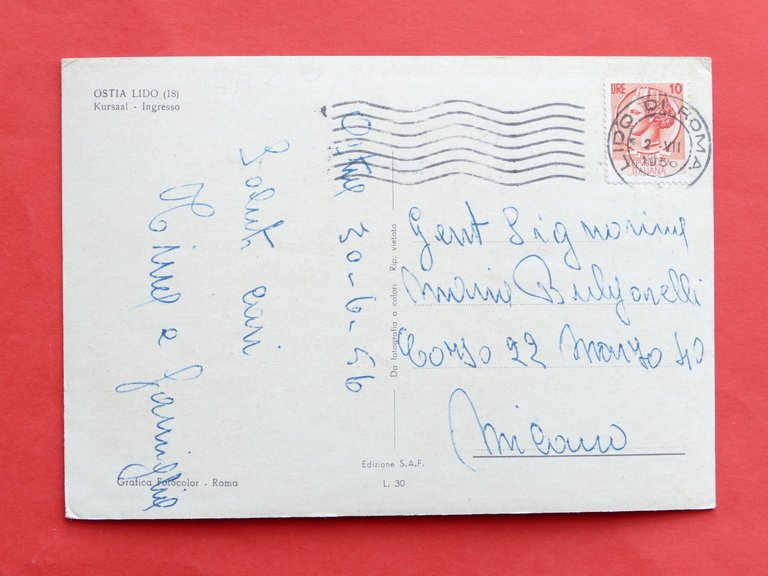 OSTIA LIDO (18)
Kursaal - Ingresso
LIRE 10
ITALIANA
LIDO DI ROMA
2-XII
1956
Ostia 30-6-56
Saluti cari
e famiglia
Da fotografia a colori Rip. vietata
Gent Signorina
Maria
Corso 22 Marzo 40
Milano
Edizione S.A.F.
Grafica Fotocolor - Roma
L. 30